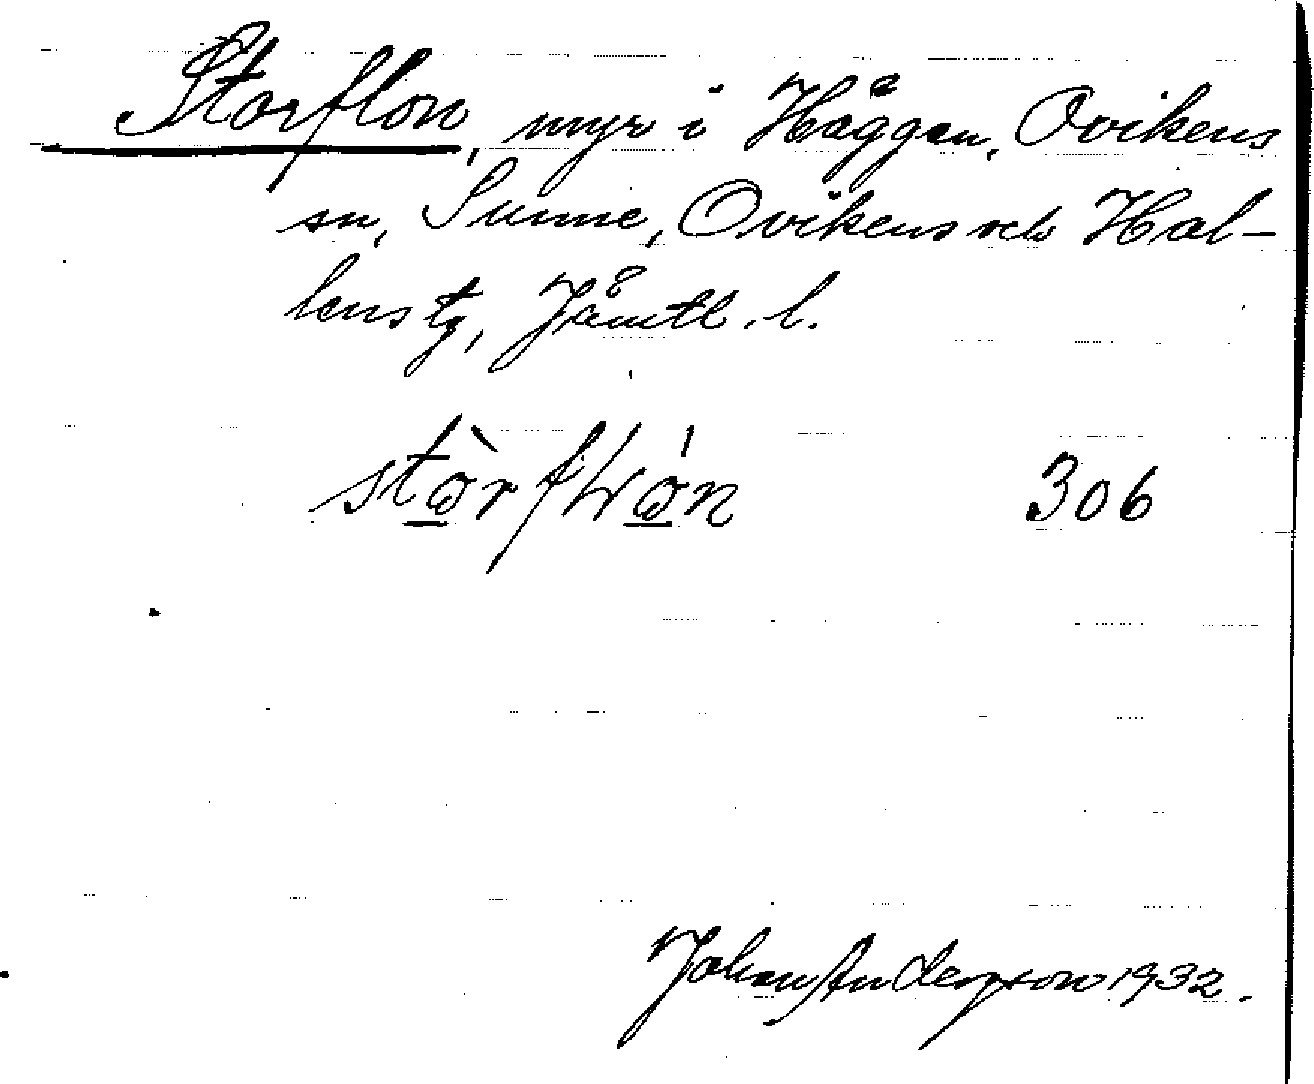 Storflon, myr i Häggen, Ovikens
sn, Sunne, Ovikens och Hal-
lens tg, Jämtl. l.
306
Johan Andersson 1932.